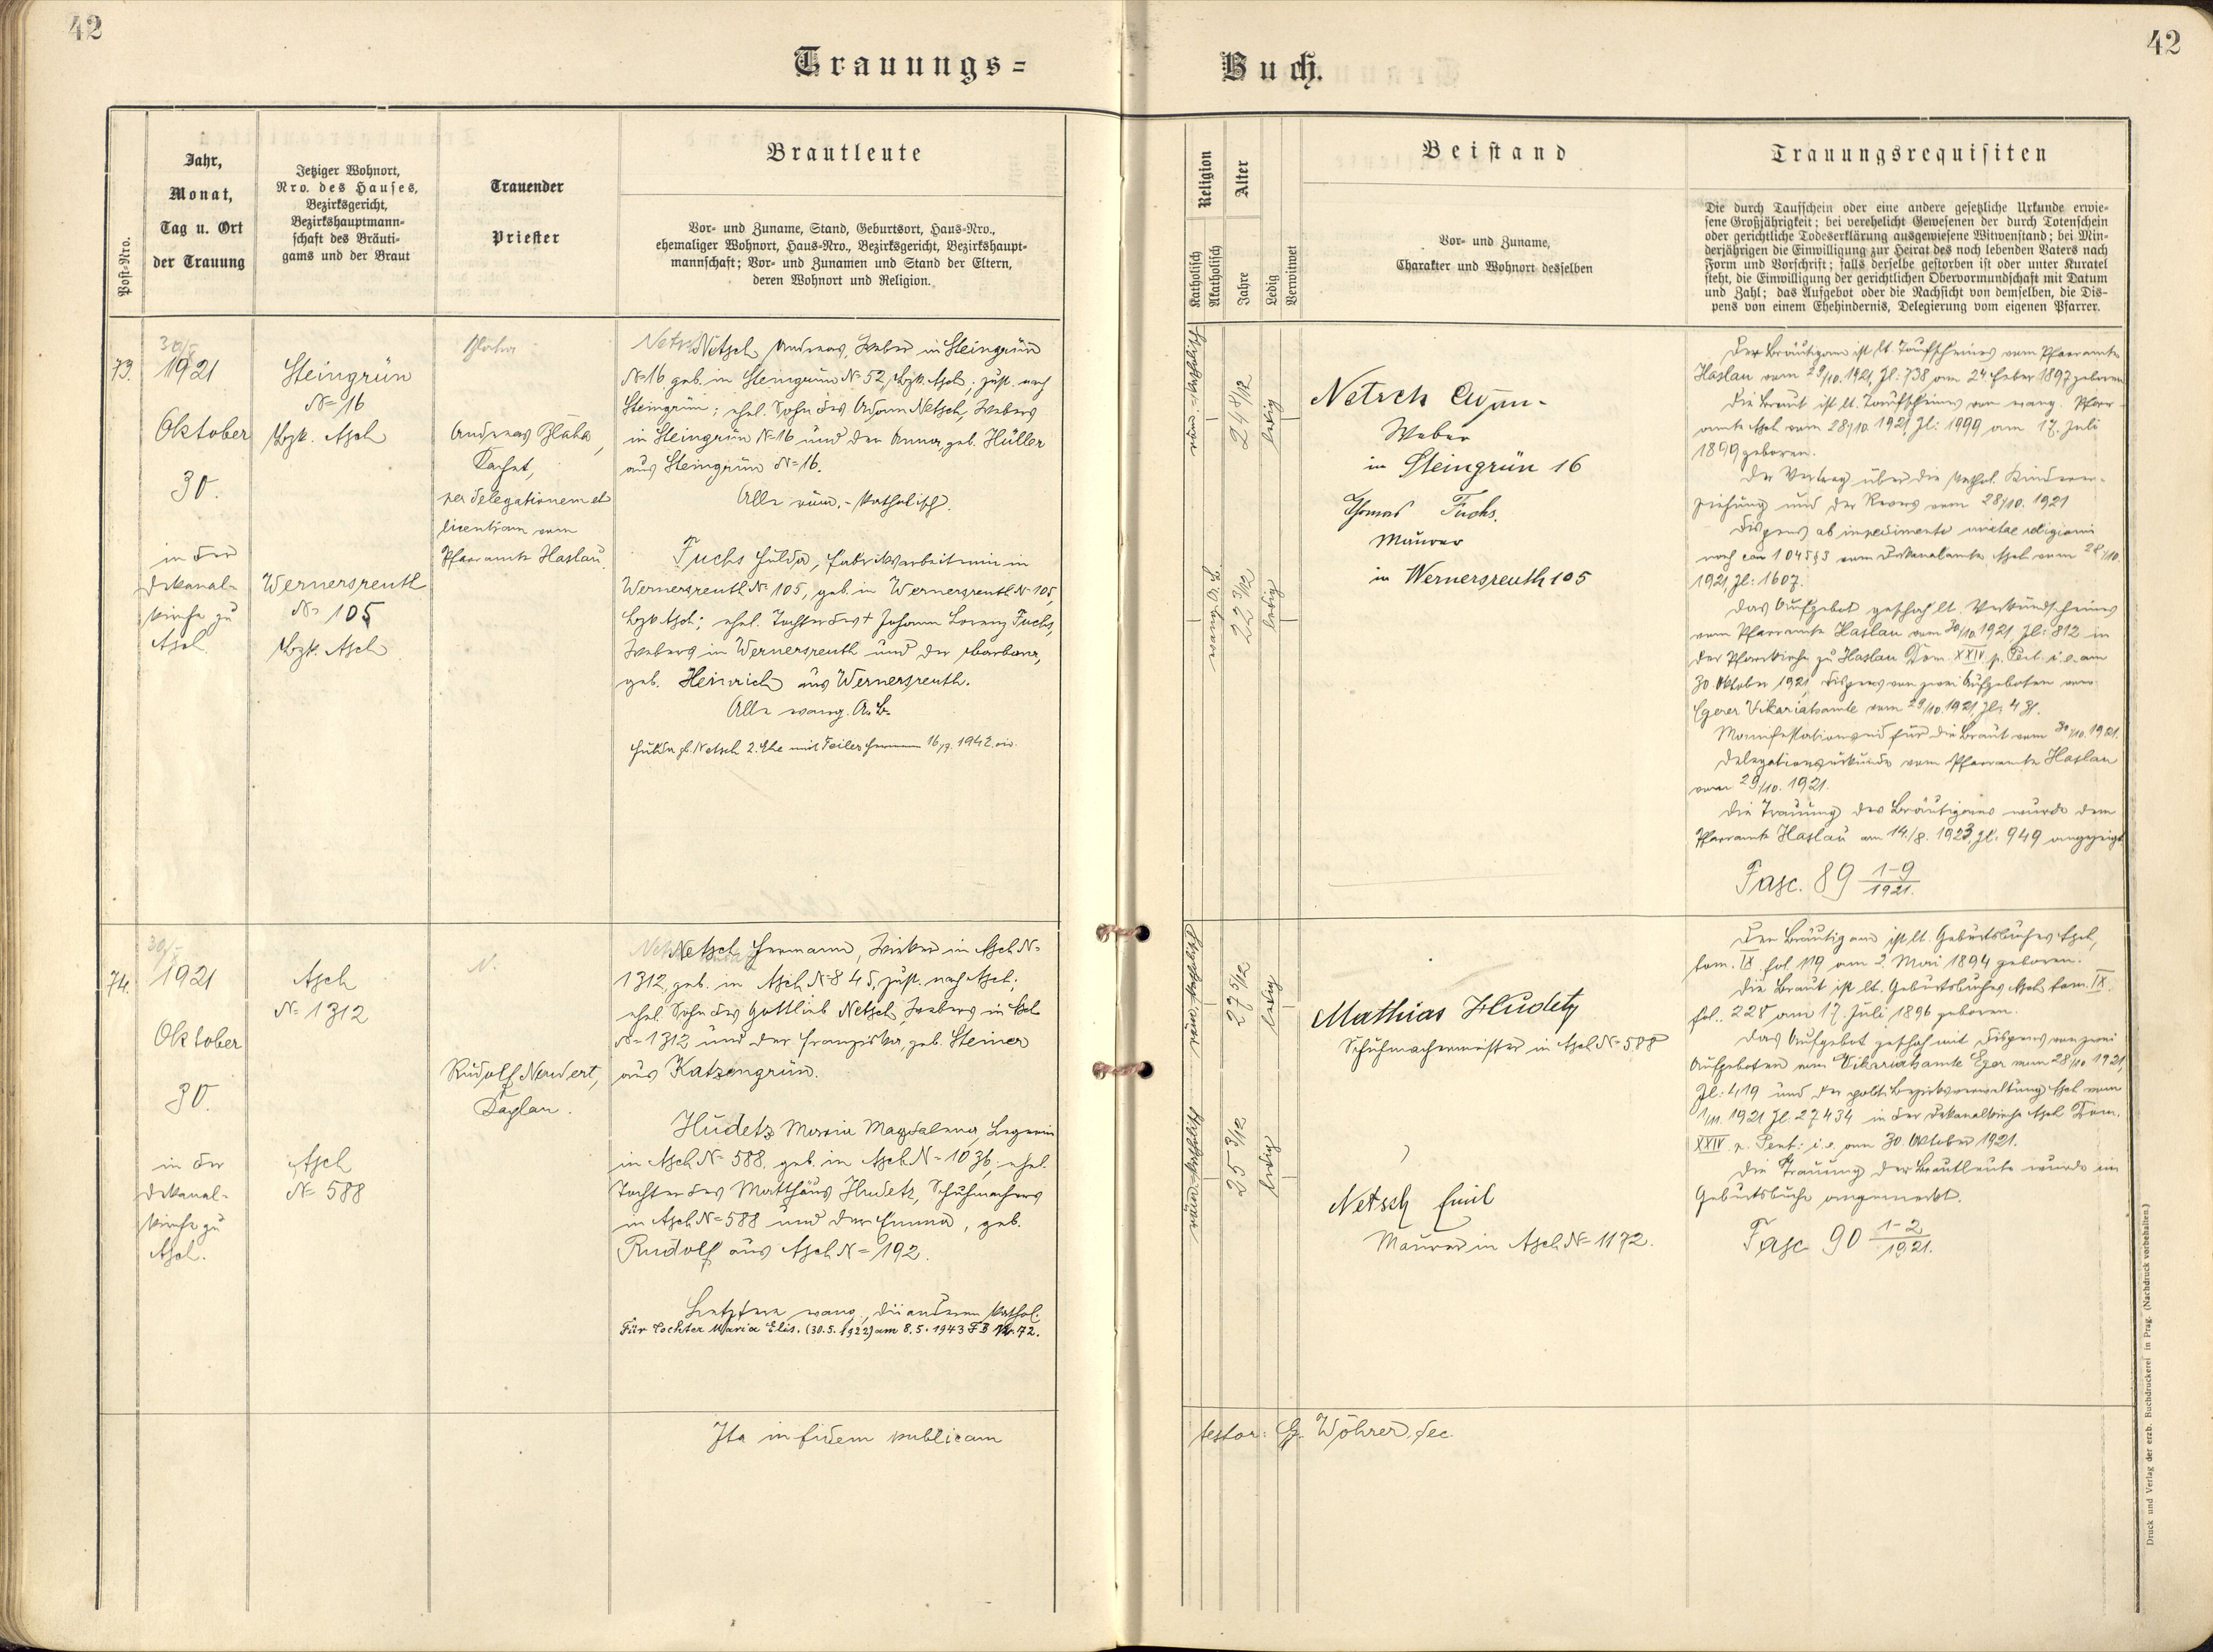 42
42
Trauungs=
Buch.
Post-Nro.
Jahr,
Monat,
Tag u. Ort
der Trauung
Jetziger Wohnort,
Nro. des Hauses,
Bezirksgericht,
Bezirkshauptmann-
schaft des Bräuti-
gams und der Braut
Trauender
Priester
Brautleute
Vor- und Zuname, Stand, Geburtsort, Haus-Nro.,
ehemaliger Wohnort, Haus-Nro., Bezirksgericht, Bezirkshaupt-
mannschaft; Vor- und Zunamen und Stand der Eltern,
deren Wohnort und Religion.
Religion
Katholisch
Akatholisch
Alter
Jahre
Ledig
Verwitwet
Beistand
Vor- und Zuname,
Charakter und Wohnort desselben
Trauungsrequisiten
Die durch Taufschein oder eine andere gesetzliche Urkunde erwie-
sene Großjährigkeit; bei verehelicht Gewesenen der durch Totenschein
oder gerichtliche Todeserklärung ausgewiesene Witwenstand; bei Min-
derjährigen die Einwilligung zur Heirat des noch lebenden Vaters nach
Form und Vorschrift; falls derselbe gestorben ist oder unter Kuratel
steht, die Einwilligung der gerichtlichen Obervormundschaft mit Datum
und Zahl; das Aufgebot oder die Nachsicht von demselben, die Dis-
pens von einem Ehehindernis, Delegierung vom eigenen Pfarrer.
73.
30/X
1921
Oktober
30.
in der
Dekanal-
kirche zu
Asch.
Steingrün
N= 16
Bzk. Asch
Wernersreuth
N= 105
Bzk. Asch
Andreas
per delegationem et
licentiam vom
Pfarramte Haslau.
Netsch Andreas, Weber in Steingrün
N=16 geb. in Steingrün N= 52, Bzk. Asch; zust. nach
Steingrün; ehel. Sohn des Adam Netsch, Webers
in Steingrün N=16 und der Anna, geb. Hüller
aus Steingrün N=16.
Alle röm.-katholisch.
Fuchs Hulda, Fabriksarbeiterin in
Wernersreuth N= 105, geb. in Wernersreuth N=105,
Bzk Asch; ehel. Tochter des † Johann Lorenz Fuchs,
Webers in Wernersreuth und der Barbara,
geb. Heinrich aus Wernersreuth.
Alle evang. A. B.
Hulda gb. Netsch 2. Ehe mit Feiler Hermann 1942
röm.-katholisch
24 8/12
ledig
evang. A. B.
22 3/12
ledig
Netsch
Weber
in Steingrün 16
Thomas Fuchs.
Maurer
in Wernersreuth 105
Der Bräutigam ist lt. Taufscheines vom Pfarramte
Haslau vom 29/10. 1921, Zl: 738 am 24. Feber 1897 geboren.
Die Braut ist lt. Taufscheines vom evang. Pfarr-
amte Asch vom 28/10. 1921, Zl: 1999 am 17. Juli
1899 geboren.
Der Vertrag über die kathol. Kinderer-
ziehung und der Revers vom 28/10. 1921
Dispens ab impedimento mixtae religionis
nach can 1045 § 3 vom Dekanalamte Asch vom 28/10.
1921, Zl: 1607.
Das Aufgebot geschah lt. Verkündscheines
vom Pfarramte Haslau vom 30/10. 1921, Zl: 812 in
der Pfarrkirche zu Haslau Dom. XXIV p. Pent. i. e. am
30 Oktober 1921, Dispens von zwei Aufgeboten vom
Egerer Vikariatsamte vom 29/10. 1921
Manifestationseid für die Braut vom 30/10. 1921.
Delegationsurkunde vom Pfarramte Haslau
vom 29/10. 1921.
Die Trauung des Bräutigams wurde dem
Pfarramte Haslau am 14./8. 1923, Zl: 949 angezeigt
Fasc. 89 1-9/1921.
74.
30/X
1921
Oktober
30.
in der
Dekanal-
kirche zu
Asch.
Asch
N= 1312
Asch
N= 588
N.
Rudolf Neudert,
Kaplan.
Netsch Hermann, Wirker in Asch N=
1312, geb. in Asch N=845, zust. nach Asch;
ehel. Sohn des Gottlieb Netsch, Webers in Asch
N=1312 und der Franziska, geb. Steiner
aus Katzengrün.
Hudetz Maria Magdalena, Legerin
in Asch N= 588, geb. in Asch N= 1036; ehel.
Tochter des Matthäus Hudetz, Schuhmachers
in Asch N=588 und der Emma, geb.
Rudolf aus Asch N= 192.
Letztere evang., die anderen kathol.
Für Tochter Maria Elis. (30.5.1922) am 8.5.1943 F B Nr. 72.
röm.-katholisch
27 5/12
ledig
röm.-katholisch
25 3/12
ledig
Mathias Hudetz
Schuhmachermeister in Asch N=588
Netsch Emil
Maurer in Asch N= 1172.
Der Bräutigam ist lt. Geburtsbuches Asch,
tom. IX. fol. 119 am 2. Mai 1894 geboren.
Die Braut ist lt. Geburtsbuches Asch tom. IX.
fol. 228 am 17. Juli 1896 geboren.
Das Aufgebot geschah mit Dispens von zwei
Aufgeboten vom Vikariatsamte Eger vom 28/10. 1921,
Zl: 419 und der polit. Bezirksverwaltung Asch vom
1/11. 1921 Zl. 27434 in der Dekanalkirche Asch Dom.
XXIV p. Pent: i. e. am 30. Oktober 1921.
Die Trauung der Brautleute wurde im
Geburtsbuche angemerkt.
Fasc 90 1-2/1921.
Ita in fidem publicam
testor: G. Wöhrer, dec.
Druck und Verlag der erzb. Buchdruckerei in Prag. (Nachdruck vorbehalten.)